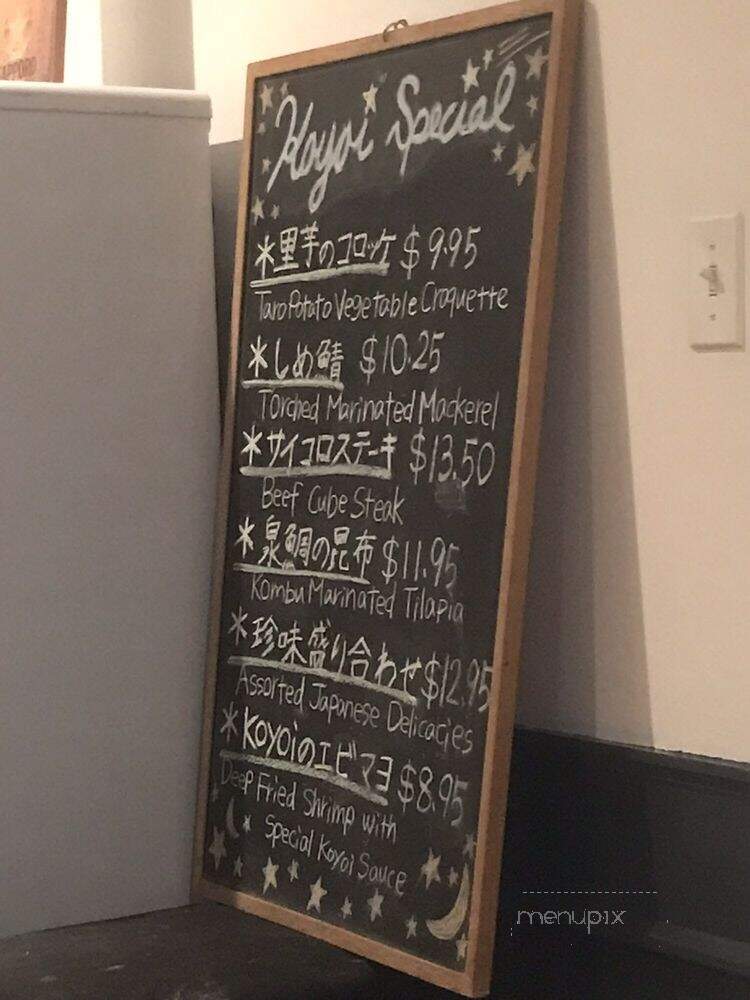 Koyoi Special
*里芋のコロッケ $9.95
Taro Potato Vegetable Croquette
*しめ鯖 $10.25
Torched Marinated Mackerel
*サイコロステーキ $13.50
Beef Cube Steak
*泉鯛の昆布 $11.95
Kombu Marinated Tilapia
*珍味盛り合わせ $12.95
Assorted Japanese Delicacies
*Koyoiのエビマヨ $8.95
Deep Fried Shrimp with
Special Koyoi Sauce
menupix